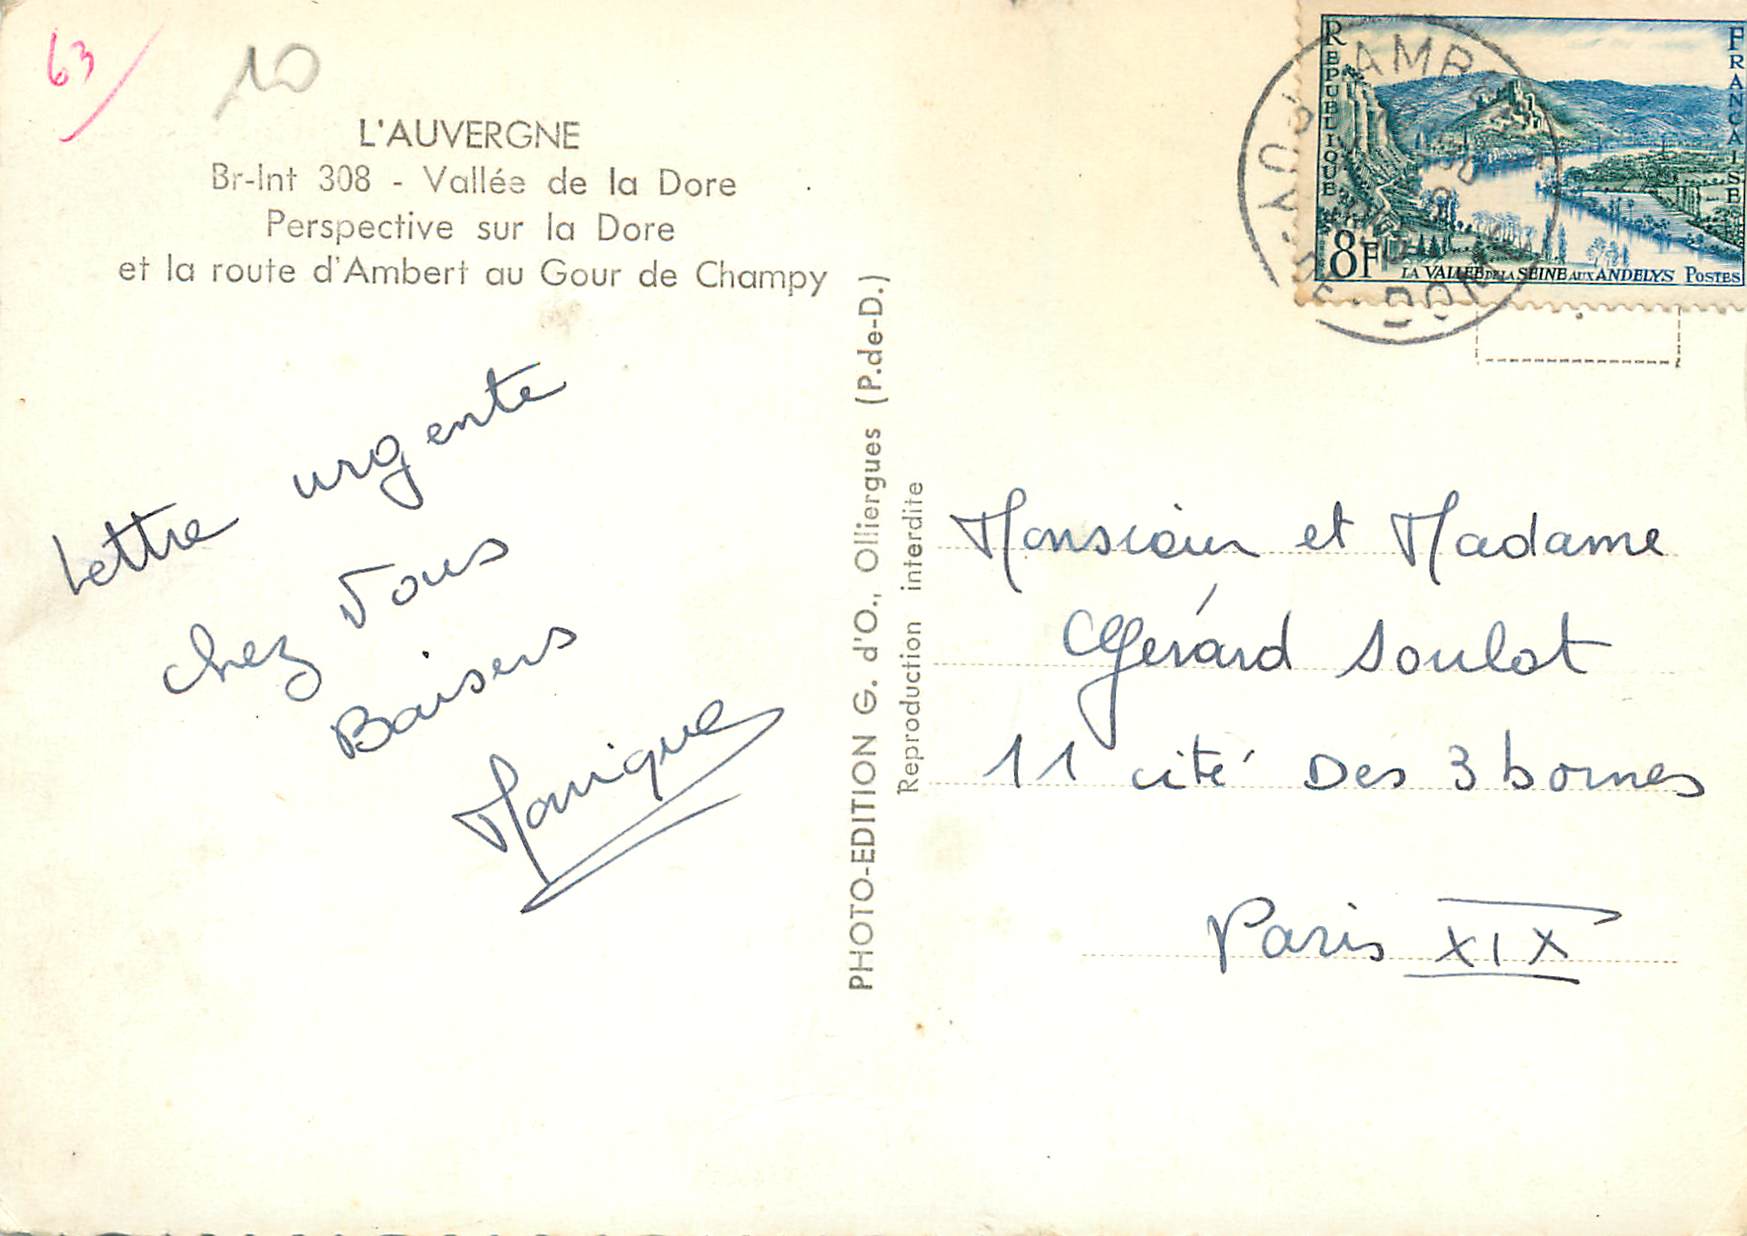 63
10
L'AUVERGNE
Br-Int 308 - Vallée de la Dore
Perspective sur la Dore
et la route d'Ambert au Gour de Champy
Lettre urgente
chez vous
Baisers
Monique
PHOTO-EDITION G. d'O., Olliergues (P.de-D.)
Reproduction interdite
REPUBLIQUE
FRANÇAISE
8F
LA VALLÉE DE LA SEINE AUX ANDELYS POSTES
AMB
PUY-DE-DOM
Monsieur et Madame
Gérard Soulat
11 cité Des 3 bornes
Paris XIX